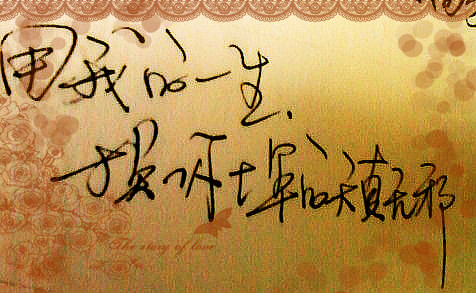 用我的一生,
换你十年的天真无邪
The story of love